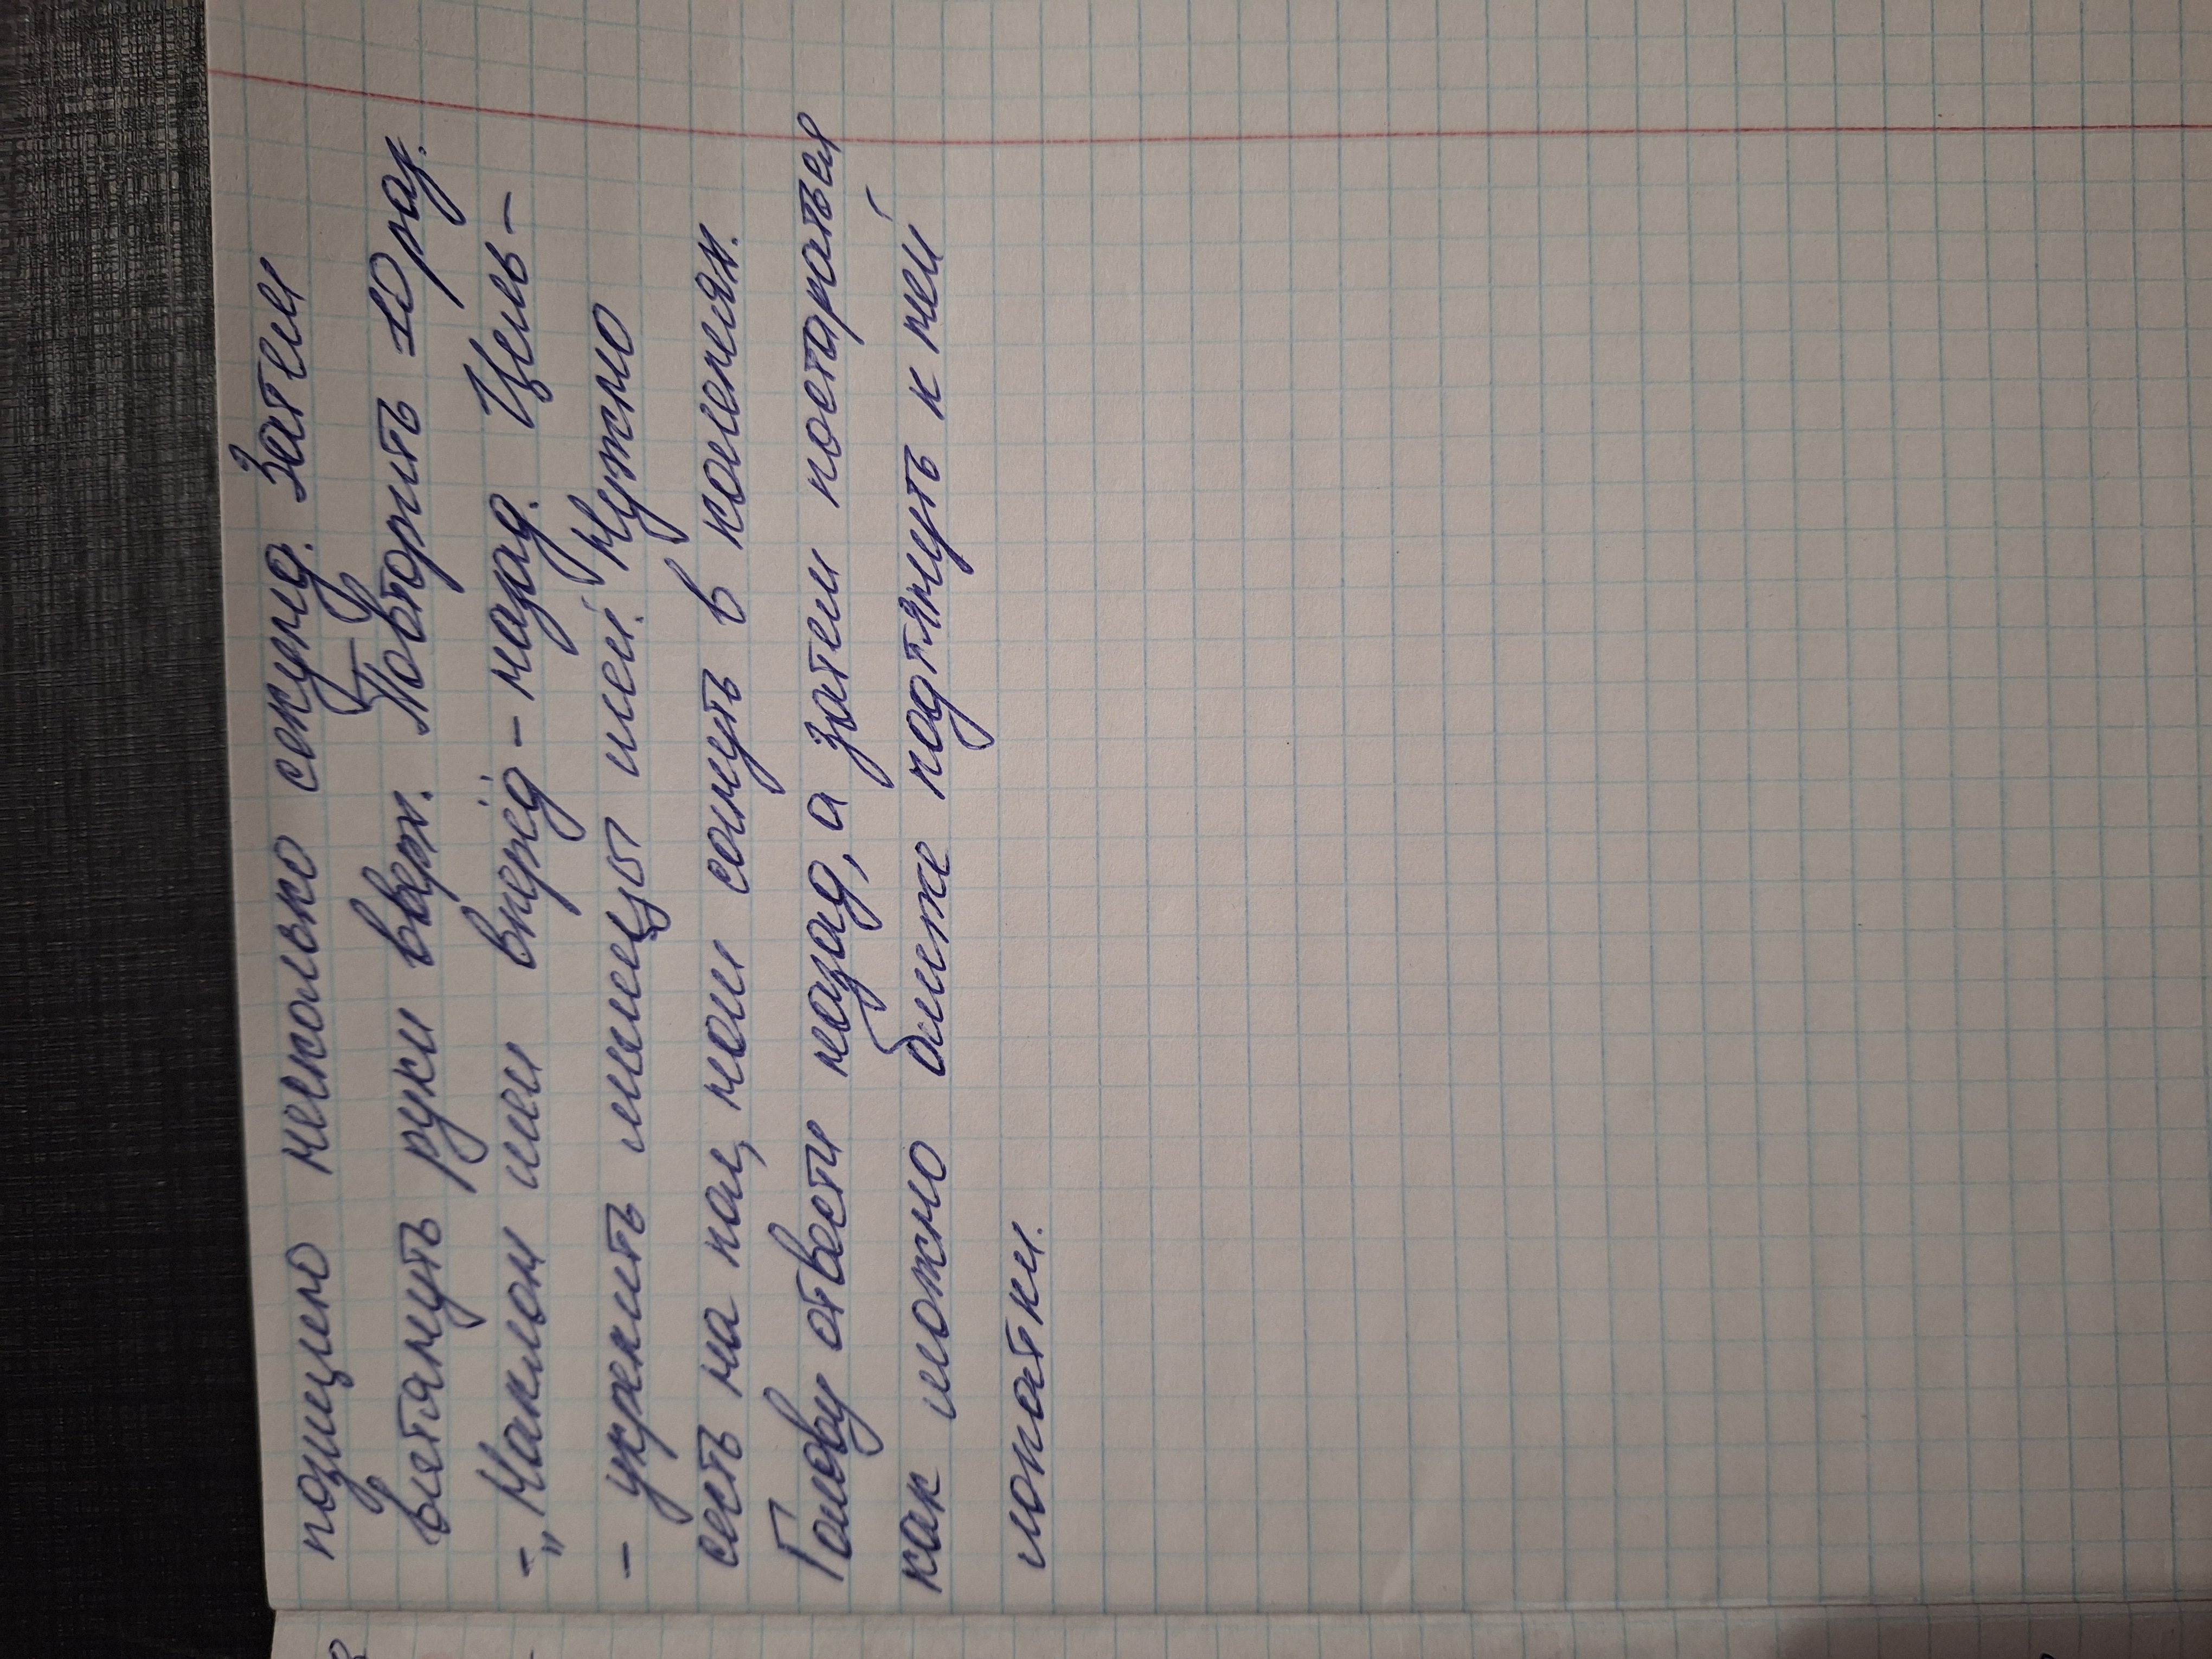 позицию несколько секунд. Затем
вытянуть руки вверх. Повторить 10 раз.
- „Наклон шеи вперёд - назад. Цель -
- укрепить мышцы шеи. Нужно
сесть на пол, ноги согнуть в коленях.
Голову отвести назад, а затем постараться
как можно ближе подтянуть к ней
лопатки.